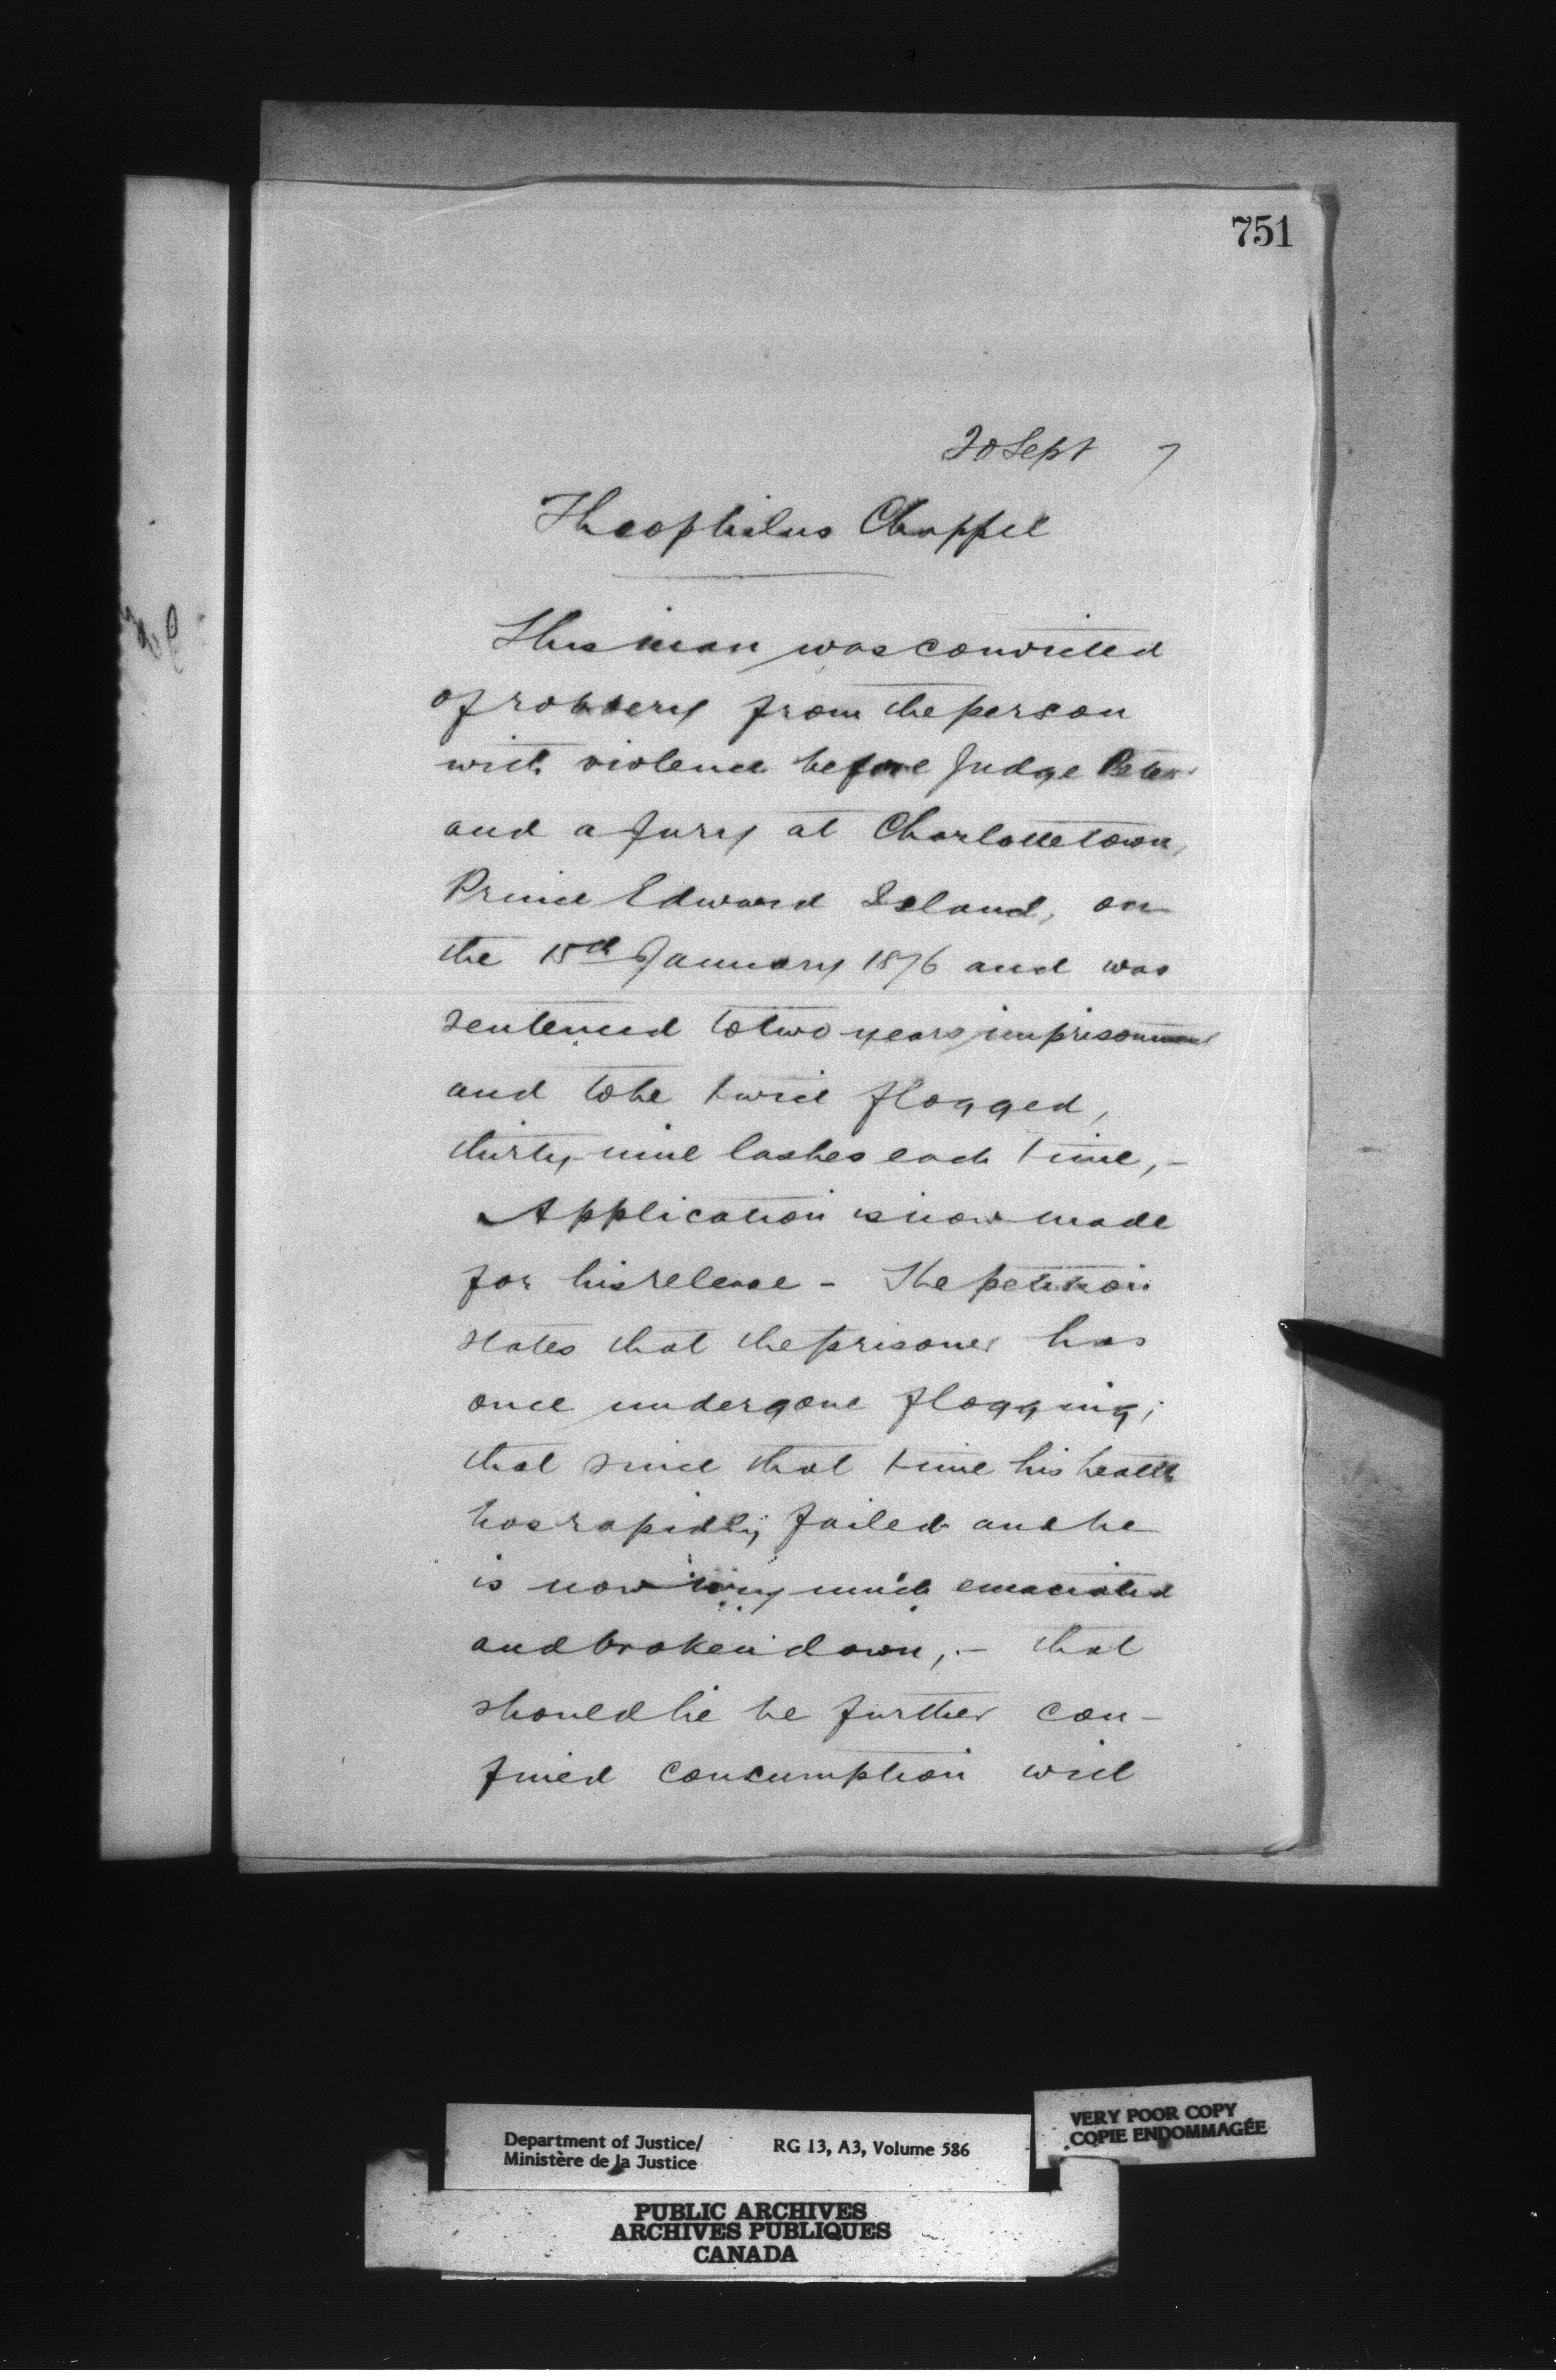 751
20 Sept 7
Theophilus Chappel
This man was convicted
of robbery from the person
with violence before Judge Peters
and a Jury at Charlottetown,
Prince Edward Island, on
the 15th January 1876 and was
sentenced to two years imprisonment
and to be twice flogged,
thirty-nine lashes each time,-
Application is now made
for his release - The petition
states that the prisoner has
once undergone flogging;
that since that time his health
has rapidly failed and he
is now very much emaciated
and broken down,- that
should he be further con-
fined consumption will
Department of Justice/
Ministère de la Justice
RG 13, A3, Volume 586
VERY POOR COPY
COPIE ENDOMMAGÉE
PUBLIC ARCHIVES
ARCHIVES PUBLIQUES
CANADA